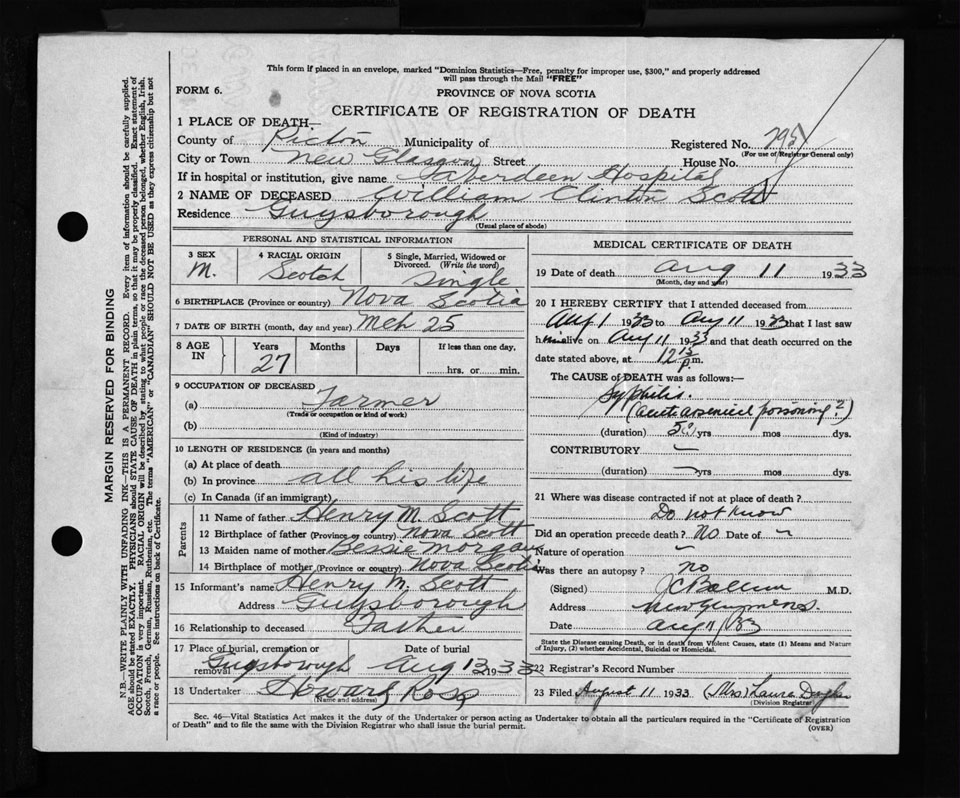 This form if placed in an envelope, marked "Dominion Statistics—Free, penalty for improper use, $300," and properly addressed
will pass through the Mail "FREE"
FORM 6.
PROVINCE OF NOVA SCOTIA
CERTIFICATE OF REGISTRATION OF DEATH
1 PLACE OF DEATH—
County of Pictou Municipality of Registered No. 295
(For use of Registrar General only)
City or Town New Glasgow Street House No.
If in hospital or institution, give name Aberdeen Hospital
2 NAME OF DECEASED William Clinton Scott
Residence Guysborough
(Usual place of abode)
PERSONAL AND STATISTICAL INFORMATION
3 SEX 4 RACIAL ORIGIN 5 Single, Married, Widowed or
Divorced. (Write the word)
M. Scotch Single
6 BIRTHPLACE (Province or country) Nova Scotia
7 DATE OF BIRTH (month, day and year) Mch 25
8 AGE IN Years Months Days If less than one day,
27 hrs. or min.
9 OCCUPATION OF DECEASED
(a) Farmer
(Trade or occupation or kind of work)
(b)
(Kind of industry)
10 LENGTH OF RESIDENCE (in years and months)
(a) At place of death
(b) In province all his life
(c) In Canada (if an immigrant)
Parents
11 Name of father Henry M. Scott
12 Birthplace of father (Province or country) Nova Scott
13 Maiden name of mother Bessie Morgan
14 Birthplace of mother (Province or country) Nova Scotia
15 Informant's name Henry M. Scott
Address Guysborough
16 Relationship to deceased Father
17 Place of burial, cremation or removal Date of burial
Guysborough Aug 13 1933
18 Undertaker Howard Ross
(Name and address)
MEDICAL CERTIFICATE OF DEATH
19 Date of death Aug 11 1933
(Month, day and year)
20 I HEREBY CERTIFY that I attended deceased from
Aug 1 1933 to Aug 11 1933 that I last saw
him alive on Aug 11 1933 and that death occurred on the
date stated above, at 12 15 p.m.
The CAUSE of DEATH was as follows:—
Syphilis.
(acute arsenical poisoning?)
(duration) 5? yrs mos dys.
CONTRIBUTORY —
(duration) yrs mos dys.
21 Where was disease contracted if not at place of death?
Do not know
Did an operation precede death? No Date of —
Nature of operation —
Was there an autopsy? no
(Signed) M.D.
Address
Date Aug 11/33
State the Disease causing Death, or in death from Violent Causes, state (1) Means and Nature
of Injury, (2) whether Accidental, Suicidal or Homicidal.
22 Registrar's Record Number
23 Filed August 11 1933 (Mrs) Laura
(Division Registrar)
Sec. 46—Vital Statistics Act makes it the duty of the Undertaker or person acting as Undertaker to obtain all the particulars required in the "Certificate of Registration
of Death" and to file the same with the Division Registrar who shall issue the burial permit.
(OVER)
MARGIN RESERVED FOR BINDING
N.B.—WRITE PLAINLY WITH UNFADING INK—THIS IS A PERMANENT RECORD. Every item of information should be carefully supplied.
AGE should be stated EXACTLY. PHYSICIANS should STATE CAUSE OF DEATH in plain terms, so that it may be properly classified. Exact statement of
OCCUPATION is very important. RACIAL ORIGIN will be described by stating to what people or race the deceased person belonged, whether English, Irish,
Scotch, French, German, Russian, Ruthenian, etc. The terms "AMERICAN" or "CANADIAN" SHOULD NOT BE USED as they express citizenship but not
a race or people. See instructions on back of Certificate.